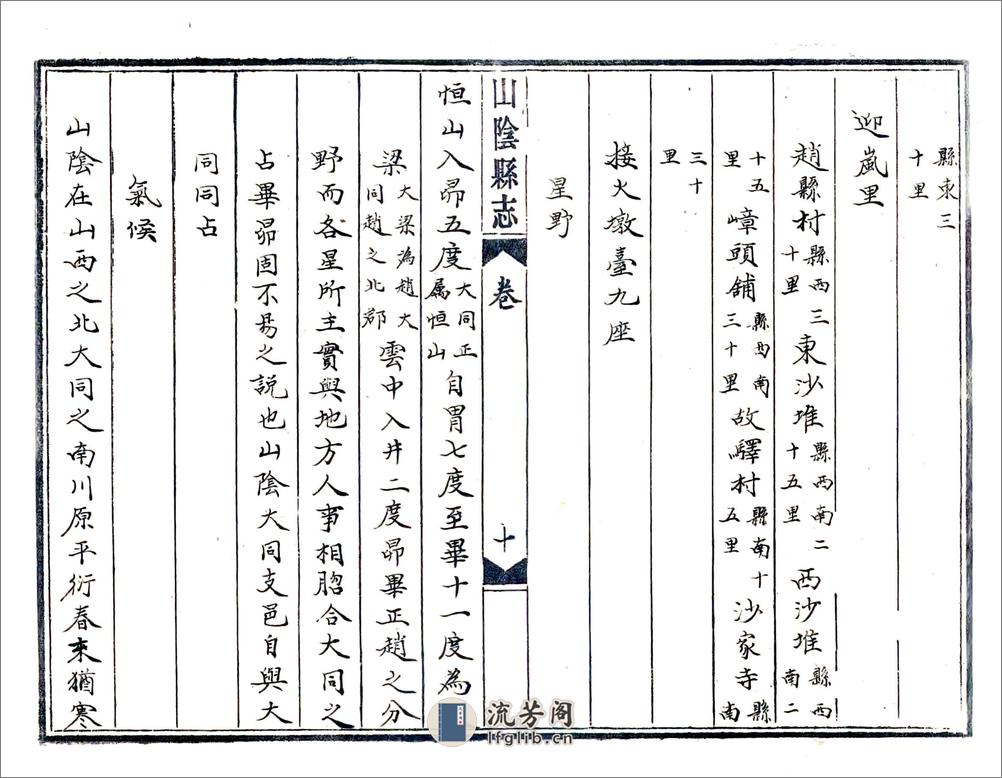 縣東三十里
迎嵐里
趙縣村縣西三十里東沙堆縣西南二十五里西沙堆縣西南二
十五里嶂頭舖縣西南三十里故驛村縣南十五里沙家寺縣南
三十里
接火墩臺九座
星野
山陰縣志 卷 十
恒山入昴五度大同正属恒山自胃七度至畢十一度為
梁大梁為趙大同趙之北郡雲中入井二度昴畢正趙之分
野而各星所主實與地方人事相脗合大同之
占畢昴固不易之説也山陰大同支邑自與大
同同占
氣候
山陰在山西之北大同之南川原平衍春来猶寒
流芳阁
lfglib.cn